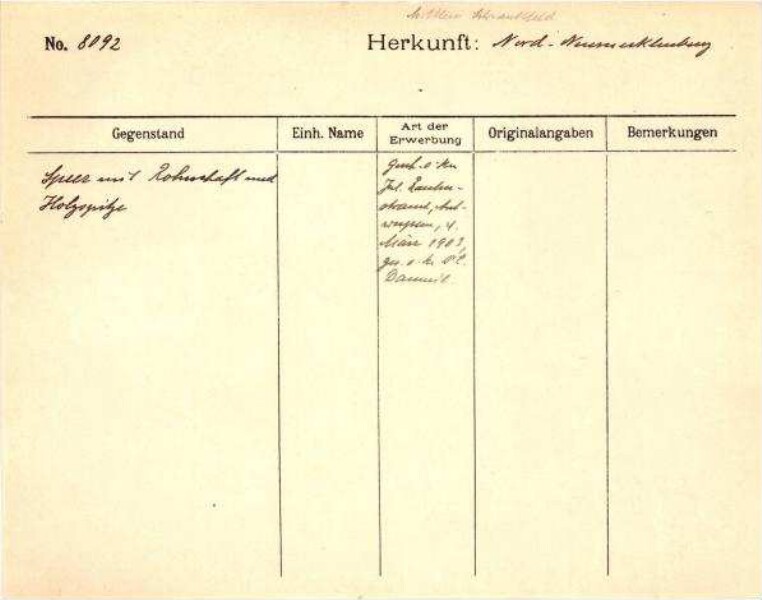 Mittlere Schrankfeld
No. 8092
Herkunft: Nord-Neumecklenburg
Gegenstand
Einh. Name
Art der
Erwerbung
Originalangaben
Bemerkungen
Speer mit Rohrschaft und
Holzspitze
Gesch. v. Hn
Jul.
Ant-
werpen, 4.
März 1903,
ges. v. Hr.